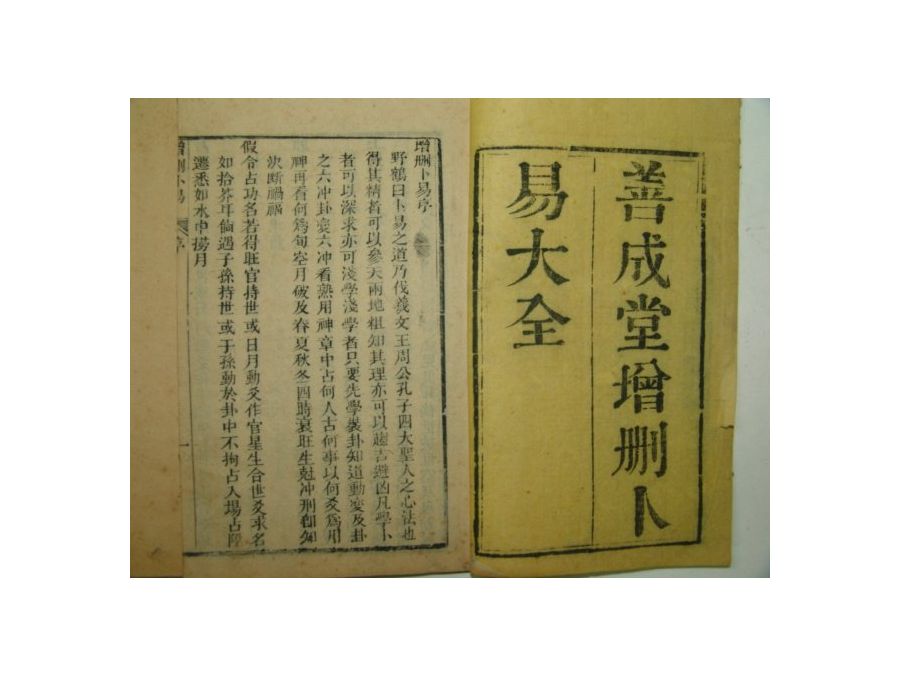 善成堂增删卜
易大全
增删卜易序
野鶴曰卜易之道乃伏羲文王周公孔子四大聖人之心法也
得其精者可以參天兩地粗知其理亦可以趨吉避凶凡學卜
者可以深求亦可淺學淺學者只要先學裝卦知道動変及卦
之六冲卦变六冲看熟用神章中占何人占何事以何爻爲用
神再看何爲旬空月破及春夏秋冬四時衰旺生尅冲刑卽知
决斷禍福
假令占功名若得旺官持世或日月動爻作官星生合世爻求名
如拾芥耳倘遇子孫持世或子孫動於卦中不拘占入場占陞
遷悉如水中撈月
增删卜易
序
一